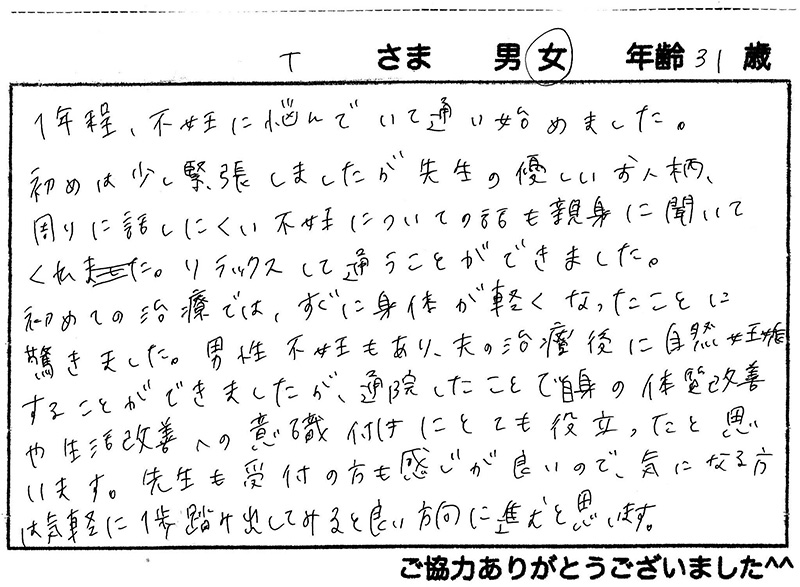 T さま 男 女 年齢 31 歳
1年程、不妊に悩んでいて通い始めました。
初めは少し緊張しましたが先生の優しいお人柄、
周りに話しにくい不妊についての話も親身に聞いて
くれた。リラックスして通うことができました。
初めての治療では、すぐに身体が軽くなったことに
驚きました。男性不妊もあり、夫の治療後に自然妊娠
することができましたが、通院したことで自身の体質改善
や生活改善への意職付けにとても役立ったと思
います。先生も受付の方も感じが良いので、気になる方
は気軽に1歩踏み出してみると良い方向に進むと思います。
ご協力ありがとうございました^^